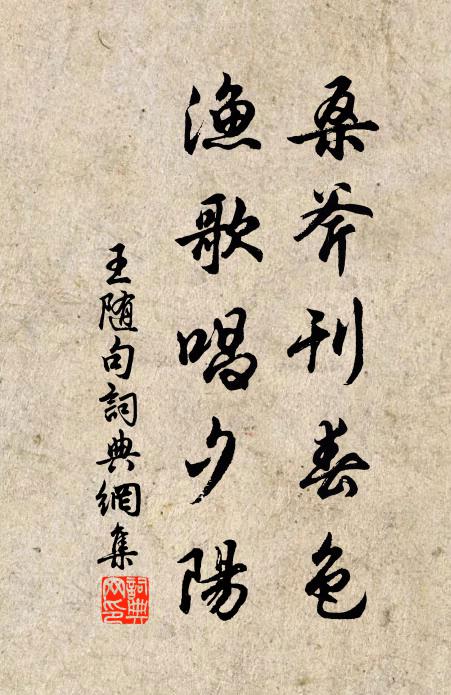 桑斧刊春色
渔歌唱夕陽
王随句詞典網集
詞典网印